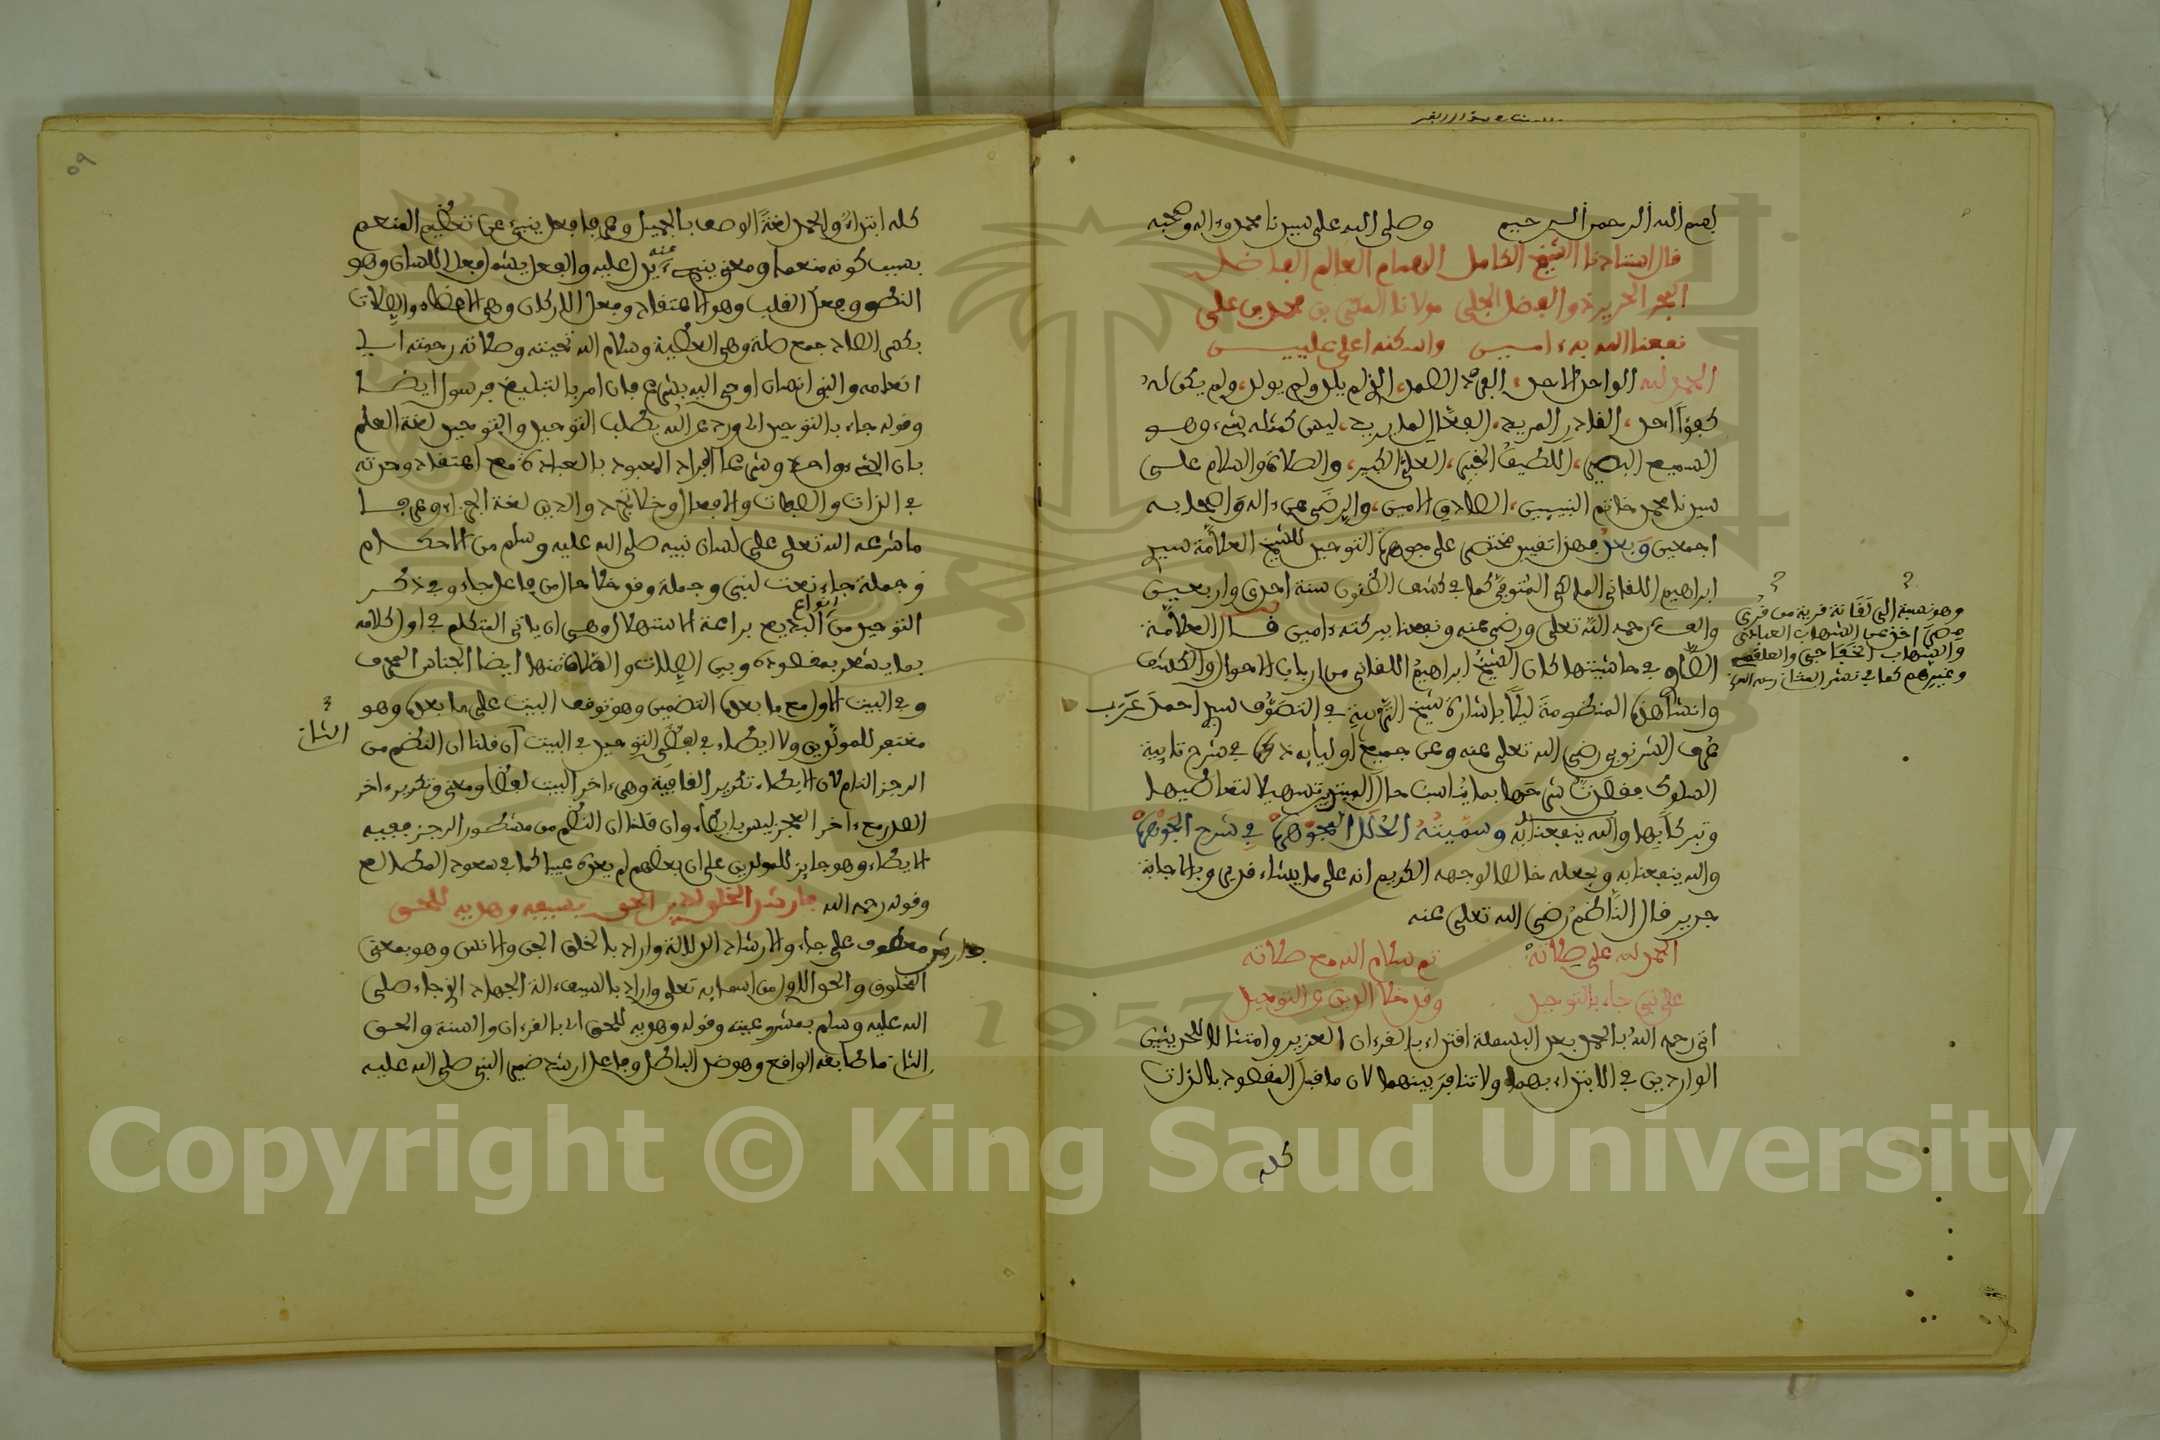 بسم الله الرحمن الرحيم وصلى الله على سيدنا محمد وءاله وصحبه
قال استاذنا الشيخ الكامل الهمام العالم الفاضل
البحر الحرير ذو الفضل الجلي مولانا المكي بن محمد بن علي
نفعنا الله به ءامين واسكنه اعلى عليين
الحمد لله الواحد الاحد، الفرد الصمد، الذي لم يلد ولم يولد، ولم يكن له
كفؤا احد، القادر المريد، الفعال لما يريد، ليس كمثله شيء وهو
السميع البصير، اللطيف الخبير، العلي الكبير، والصلاة والسلام على
سيدنا محمد خاتم النبيين، الصادق الامين، والرضى عن ءاله واصحابه
اجمعين وبعد فهذا تقييد مختصر على جوهرة التوحيد للشيخ العلامة سيدي
ابراهيم اللقاني المالكي المتوفى كما في كشف الظنون سنة احدى واربعين
والف رحمه الله تعلى ورضي عنه ونفعنا ببركته ءامين قال العلامة
الصاوي في حاشيتها كان الشيخ ابراهيم اللقاني من ارباب الاحوال والكشف
وانشا هذه المنظومة ليلا باشارة شيخ التربية في التصوف سيدي احمد عرب
الشرنوبي رضي الله تعلى عنه وعن جميع اوليايه في شرح تايية
السلوك فقصدت شرحها بما يناسب حال المبتدي تسهيلا لتعاطيها
وتبركا بها والله ينفعنا به وسميته الحلل الجوهرية في شرح الجوهرة
والله ينفعنا به ويجعله خالصا لوجهه الكريم انه على ما يشاء قدير وبالاجابة
جدير قال الناظم رضي الله تعلى عنه
الحمد لله على صلاته ثم سلام الله مع صلاته
على نبي جاء بالتوحيد وقد خلا الدين عن التوحيد
اتى رحمه الله بالحمد بعد البسملة اقتداء بالقرءان العزيز وامتثالا للحديثين
الواردين في الابتداء بهما ولا تنافر بينهما لان ما قبل المقصود بالذات
كله
وهو نسبة الى لقانة قرية من قرى
مصر اخذ عن الشهاب العبادي
والشهاب الخفاجي والعلقمي
وغيرهم كما في نشر المثاني
٥٩
كله ابتداء والحمد لغة الوصف بالجميل وعرفا فعل ينبيء عن تعظيم المنعم
بسبب كونه منعما ومعنى ينبيء عنه يدل عليه والفعل يشمل فعل اللسان وهو
النطق وفعل القلب وهو الاعتقاد وفعل الاركان وهي الاعضاء والصلات
بكسر الصاد جمع صلة وهي العطية وسلام الله تحيته وصلاته رحمته اي
انعامه والنبي انسان اوحي اليه بشرع فان امر بالتبليغ فرسول ايضا
وقوله جاء بالتوحيد اي ورد عن الله بطلب التوحيد والتوحيد لغة العلم
بان الشيء واحد وشرعا افراد المعبود بالعبادة مع اعتقاد وحدته
في الذات والصفات والافعال وخلا تجرد والدين لغة الجزاء وعرفا
ما شرعه الله تعلى على لسان نبيه صلى الله عليه وسلم من الاحكام
وجملة جاء نعت لنبي وجملة وقد خلا حال من فاعل جاء وفي ذكر
التوحيد من انواع البديع براعة الاستهلال وهي ان ياتي المتكلم في اول كلامه
بما يشعر بمقصوده وبين الصلات والصلاة منها ايضا الجناس المحرف
وفي البيت الاول مع ما بعده التضمين وهو توقف البيت على ما بعده وهو
مغتفر للمولدين ولا ايطاء في لفظي التوحيد في البيت الثان ان قلنا ان النظم من
الرجز التام لان الايطاء تكرير القافية وهي ءاخر البيت لفظا ومعنى وتكرير ءاخر
الصدر مع ءاخر العجز ليس بايطاء وان قلنا ان النظم من مشطور الرجز ففيه
الايطاء وهو جايز للمولدين على ان بعضهم لم يعده عيبا كما في صعود المطالع
وقوله رحمه الله فارشد الخلق لدين الحق بسيفه وهديه للحق
فارشد معطوف على جاء والارشاد الدلالة واراد بالخلق الجن والانس وهو بمعنى
المخلوق والحق الاول من اسمايه تعلى واراد بالسيف ءالة الجهاد الذي جاء صلى
الله عليه وسلم بمشروعيته وقوله وهديه للحق اي بالقرءان والسنة والحق
الثان ما طابقه الواقع وهو ضد الباطل وفاعل ارشد ضمير النبي صلى الله عليه
Copyright © King Saud University
1957